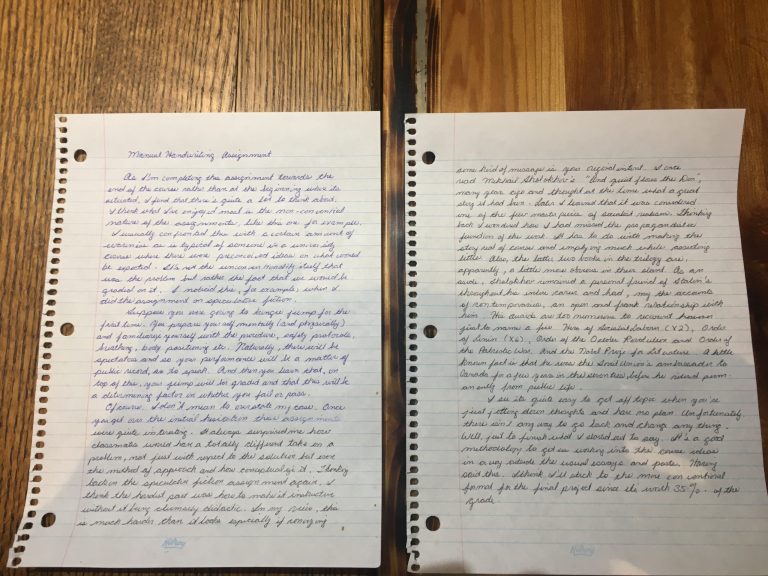 Manual Handwriting Assignment
As I'm completing this assignment towards the
end of the course rather than at the beginning where its
situated, I find that there's quite a lot to think about.
I think what I've enjoyed most is the non-conventional
nature of the assignments. Like this one for example.
I usually confronted this with a certain amount of
as is typical of someone in a university
course where there were preconceived ideas on what would
be expected. It's not the unconventionality itself that
was the problem but rather the fact that we would be
graded on it. I noticed this, for example, when I
did the assignment on speculative fiction.
Suppose you are going to bungie jump for the
first time. You prepare yourself mentally (and physically)
and familiarize yourself with the procedure, safety protocols,
breathing, body positioning etc. Naturally, there will be
spectators and so your performance will be a matter of
public record, so to speak. And then you learn that, on
top of this, your jump will be graded and that this will be
a determining factor in whether you fail or pass.
Of course, I don't mean to overstate my case. Once
you get over the initial hesitation these assignments
were quite interesting. It always surprised me how
classmates would have a totally different take on a
problem, not just with respect to the solution but even
the method of approach and how conceptualized. Thinking
back on the speculative fiction assignment again, I
think the hardest part was how to make it instructive
without it being clumsily didactic. In my view, this
is much harder than it looks especially if
some kind of message is your original intent. I once
read Mikhail Sholokhov's "And Quiet Flows the Don",
many years ago and thought at the time what a great
story it had been. Later I learned that it was considered
one of the few masterpieces of socialist realism. Thinking
back I wondered how I had missed the propagandistic
function of the work. It has to do with making the
story and of course and implying much while asserting
little. Also, the latter two books in the trilogy are,
apparently, a little more obvious in their slant. As an
aside, Sholokhov remained a personal friend of Stalin's
throughout his entire career and had, by the accounts
of contemporaries, an open and frank relationship with
him. The awards are too numerous to recount here
just to name a few. Hero of Socialist Labour (x2), Order
of Lenin (x6), Order of the October Revolution and Order of
the Patriotic War. And the Nobel Prize for Literature. A little
known fact is that he was the Soviet Union's ambassador to
Canada for a few years in the seventies, before he retired perm-
anently from public life.
I see its quite easy to get off topic when you're
just jotting down thoughts and have no plan. Unfortunately
there isn't any way to go back and change any thing.
Well, just to finish what I started out to say. It's a good
methodology to get us working into the course ideas
in a way outside the usual essays and posts. Having
said this. I think I'll stick to the more conventional
format for the final project since its worth 35% of the
grade.
Hilroy
Hilroy